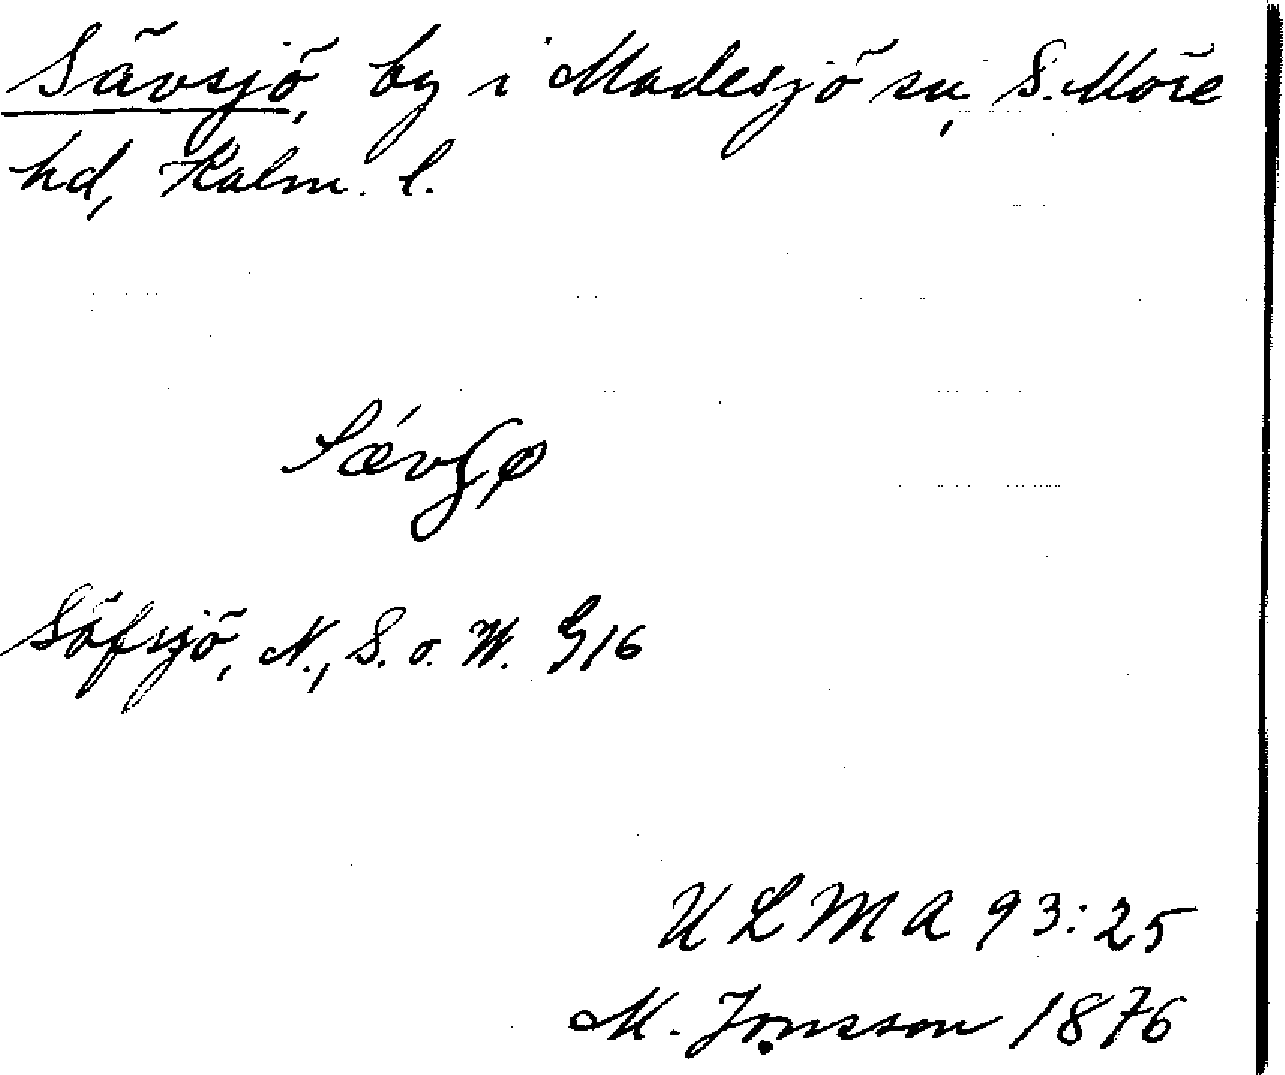 Sävsjö, by i Madesjö sn, S. Möre
hd, Kalm. l.
Säfsjö, N., S. o. W. G16
ULMA 93:25
M. Jonsson 1876